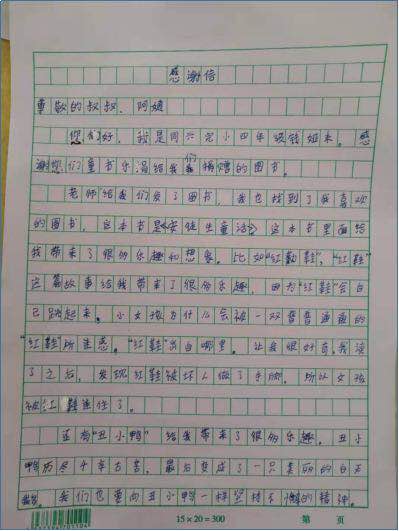 感谢信
尊敬的叔叔、阿姨
您们好，我是同兴完小四年级钱姐来。感
谢您们童书乐捐给我们捐赠的图书。
老师给我们发了图书，我也找到了我喜欢
的图书，这本书是《安徒生童话》，这本书里面给
我带来了很多乐趣和想象。比如“红鞋”，“红鞋”
这篇故事给我带来了很多乐趣，因为“红鞋”会自
己跳起来。小女孩为什么会被一双普普通通的
“红鞋”所迷惑。“红鞋”出自哪里。让我很好奇，我读
了之后，发现红鞋被坏人做了手脚，所以女孩
被红鞋迷住了。
还有“丑小鸭”给我带来了很多乐趣，丑小
鸭历尽千辛万苦，最后变成了一只美丽的白天
鹅。我们也要向丑小鸭一样坚持不懈的精神。
15×20=300 第 页